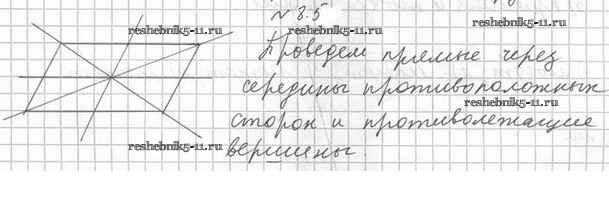 № 8.5
reshebnik5-11.ru
reshebnik5-11.ru
Проведем прямые через
середины противоположных
reshebnik5-11.ru
сторон и противолежащие
reshebnik5-11.ru
вершины.